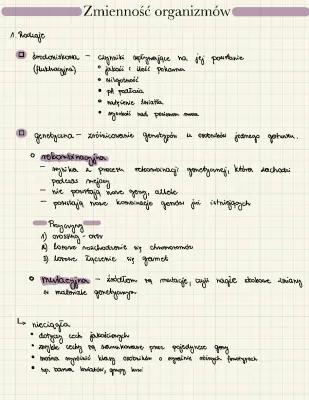 Zmienność organizmów
1. Rodzaje
środowiskowa – czynniki wpływające na jej powstanie
(fluktuacyjna) • jakość i ilość pokarmu
• wilgotność
• pH podłoża
• natężenie światła
• wysokość nad poziomem morza
genetyczna – zróżnicowanie genotypów u osobników jednego gatunku.
rekombinacyjna
– wynika z procesu rekombinacji genetycznej, która zachodzi
podczas mejozy
– nie powstają nowe geny, allele
– powstają nowe kombinacje genów już istniejących
Przyczyny
1) crossing-over
2) losowe rozchodzenie się chromosomów
3) losowe łączenie się gamet
mutacyjna – źródłem są mutacje, czyli nagłe skokowe zmiany
w materiale genetycznym
↳ nieciągła
• dotyczy cech jakościowych
• zwykle cechy są warunkowane przez pojedyncze geny
• można wyróżnić klasy osobników o wyraźnie różnych fenotypach
• np. barwa kwiatów, grupy krwi